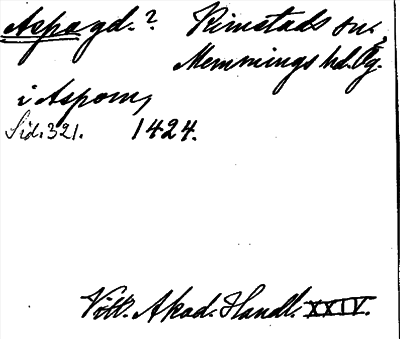 Aspa gd.? Kimstads sn,
Memmings hd. Ög.
i Aspom,
Sid. 321. 1424.
Vitt. Akad. Handl. XXIV.